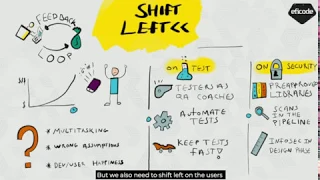 SHIFT
LEFT<<
eficode
FEEDBACK
LOOP
* MULTITASKING
* WRONG ASSUMPTIONS
* DEV/USER HAPPINESS
ON TEST
TESTERS AS
QA COACHES
AUTOMATE
TESTS
KEEP TESTS
FAST!
ON SECURITY
PREAPPROVED
LIBRARIES
SCANS
IN THE
PIPELINE
INFOSEC IN
DESIGN
But we also need to shift left on the users